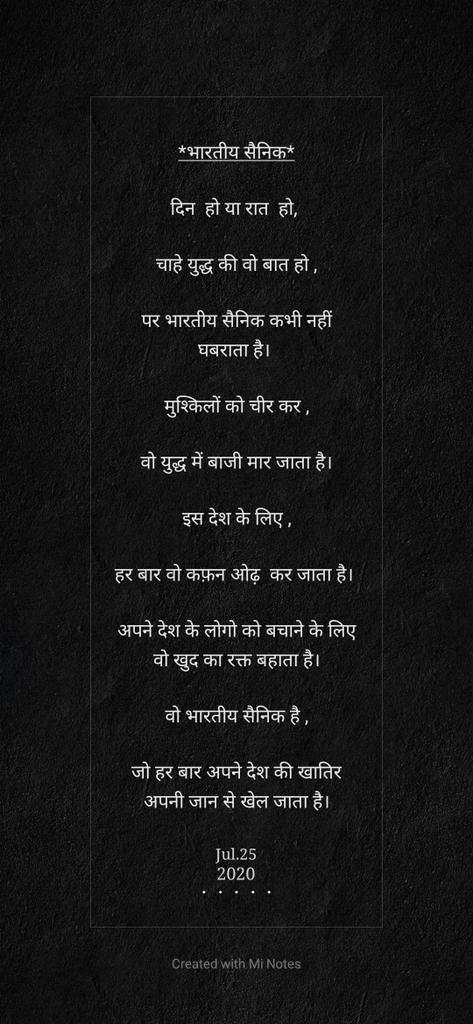 *भारतीय सैनिक*
दिन  हो या रात  हो,
चाहे युद्ध की वो बात हो ,
पर भारतीय सैनिक कभी नहीं
घबराता है।
मुश्किलों को चीर कर ,
वो युद्ध में बाजी मार जाता है।
इस देश के लिए ,
हर बार वो कफ़न ओढ़  कर जाता है।
अपने देश के लोगो को बचाने के लिए
वो खुद का रक्त बहाता है।
वो भारतीय सैनिक है ,
जो हर बार अपने देश की खातिर
अपनी जान से खेल जाता है।
Jul.25
2020
• • • • •
Created with Mi Notes